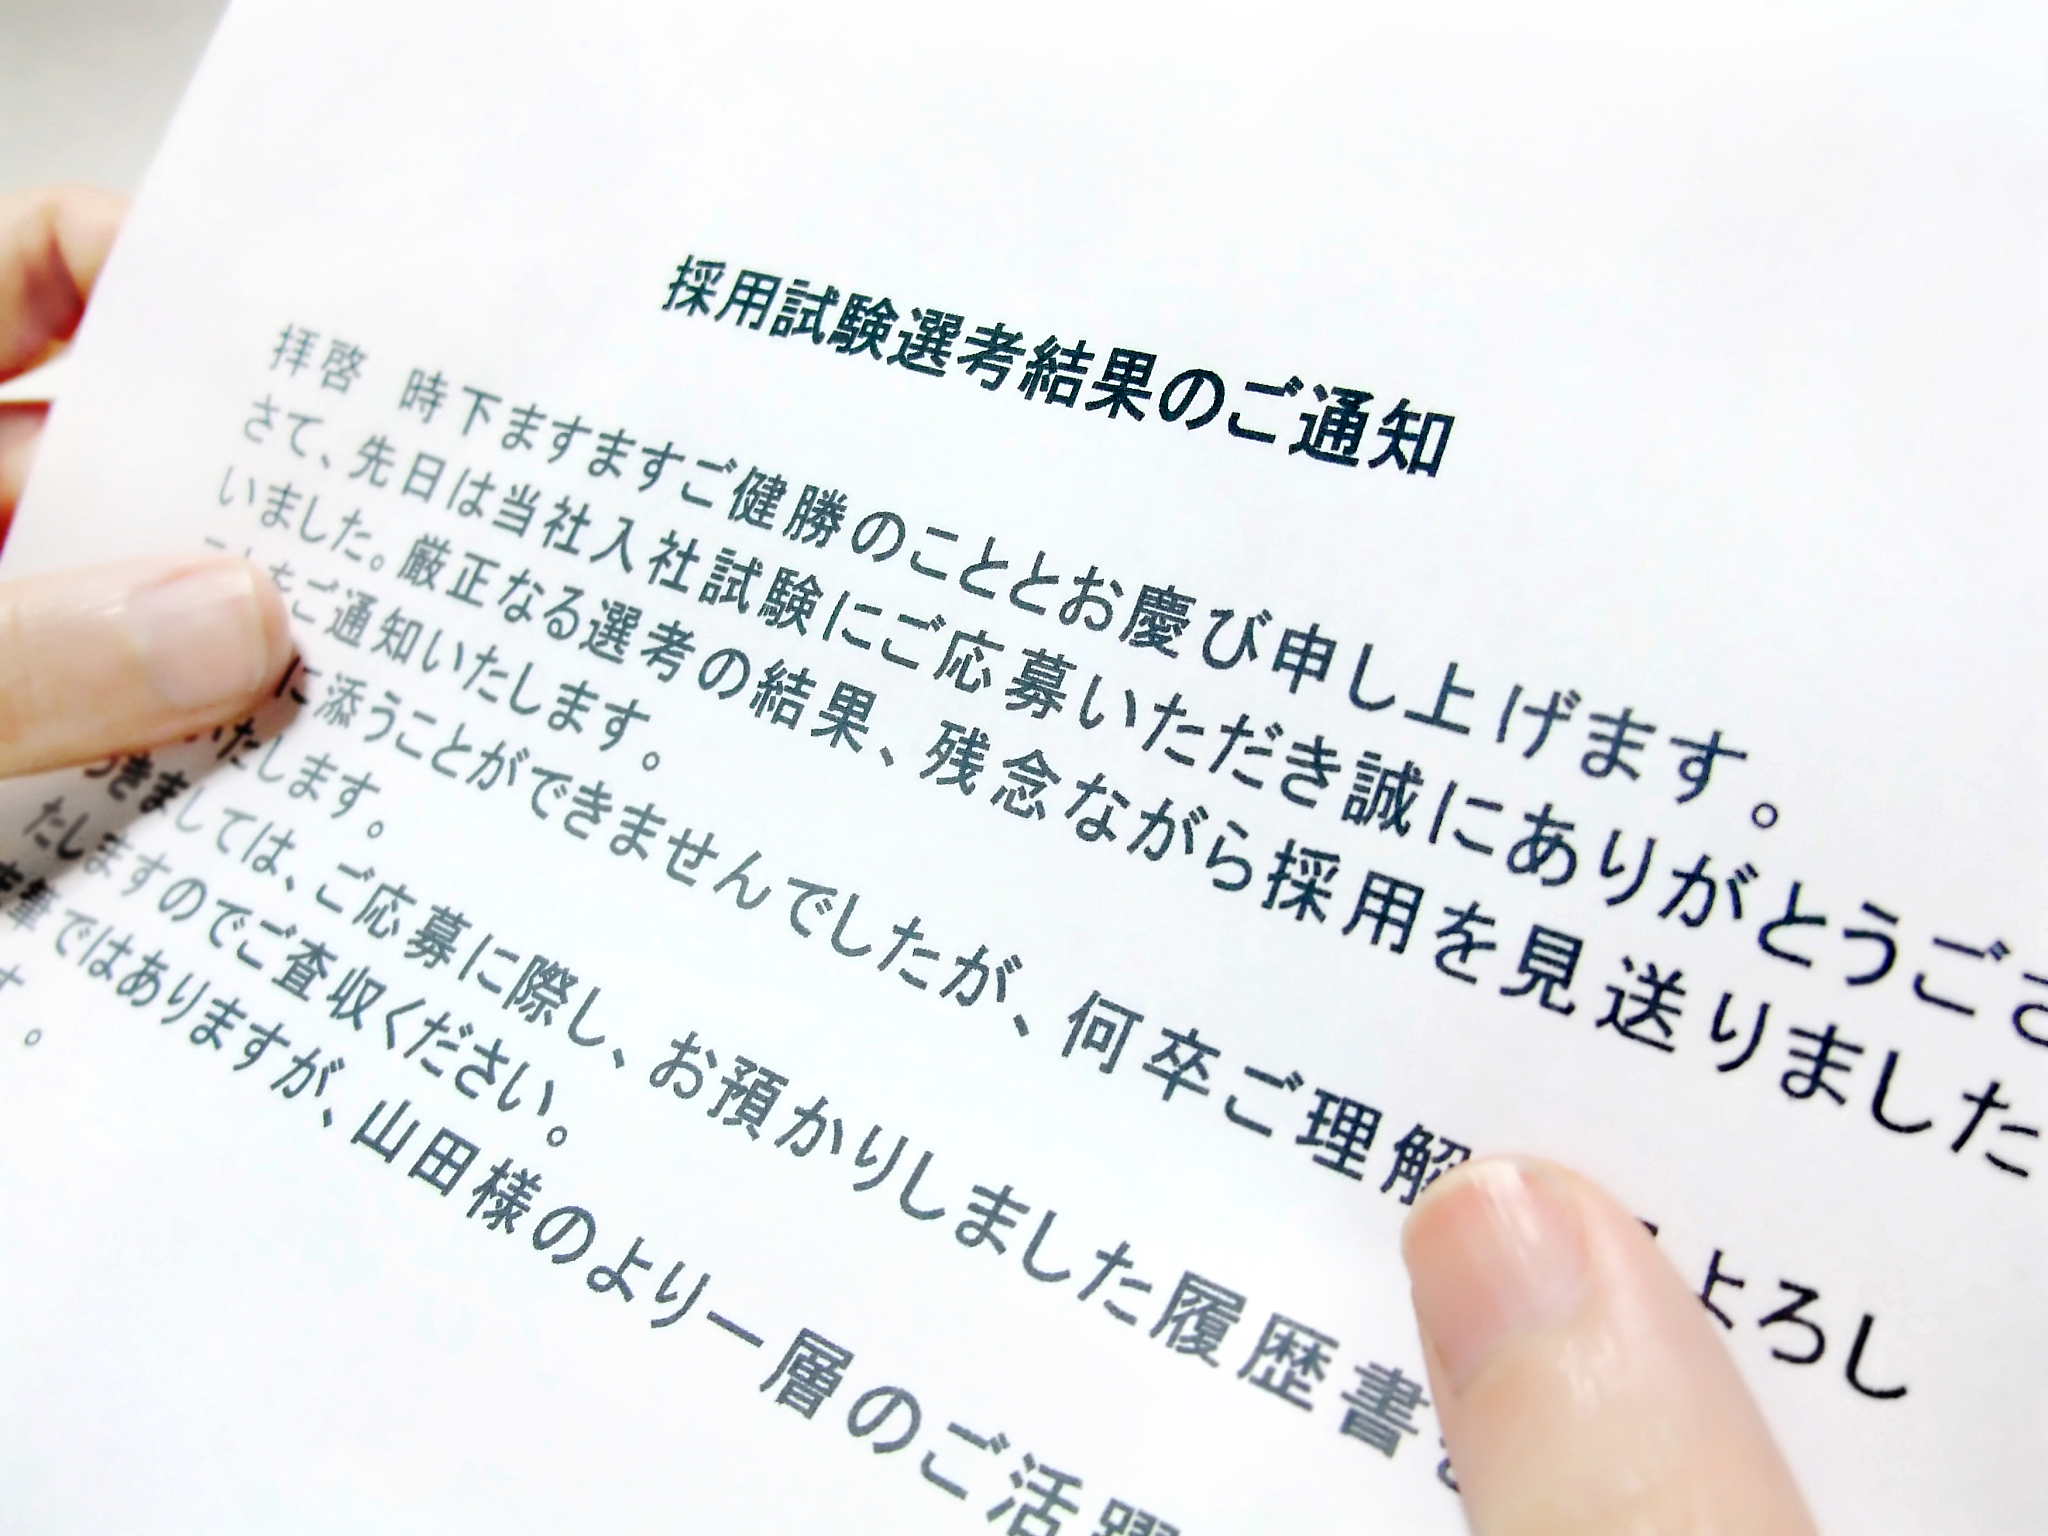 採用試験選考結果のご通知
拝啓　時下ますますご健勝のこととお慶び申し上げます。
さて、先日は当社入社試験にご応募いただき誠にありがとうござ
いました。厳正なる選考の結果、残念ながら採用を見送りました
をご通知いたします。
に添うことができませんでしたが、何卒ご理解 よろし
いたします。
つきましては、ご応募に際し、お預かりしました履歴書
たしますのでご査収ください。
筆ではありますが、山田様のより一層のご活躍
す。